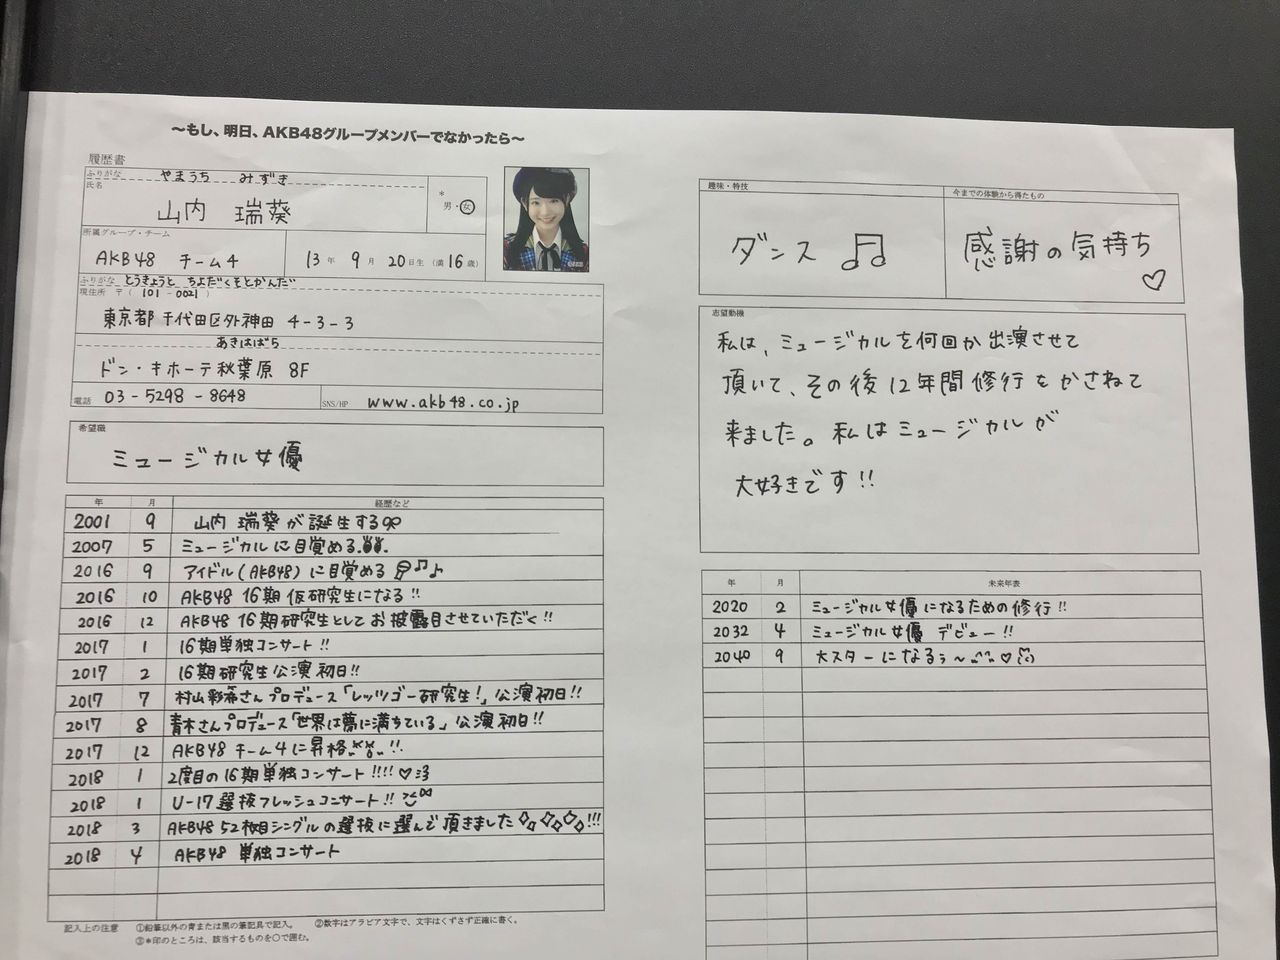 ～もし、明日、AKB48グループメンバーでなかったら～
履歴書
ふりがな やまうち みずき
氏名
山内 瑞葵
＊
男・女
所属グループ・チーム
AKB48 チーム4
13年 9月 20日生 (満16歳)
ふりがな とうきょうと ちよだくそとかんだ
現住所 〒(101-0021)
東京都千代田区外神田 4-3-3
あきはばら
ドン・キホーテ秋葉原 8F
電話 03-5298-8648
SNS/HP www.akb48.co.jp
希望職
ミュージカル女優
年 月 経歴など
2001 9 山内 瑞葵が誕生する
2007 5 ミュージカルに目覚める
2016 9 アイドル(AKB48)に目覚める♪♫♪
2016 10 AKB48 16期 仮研究生になる!!
2016 12 AKB48 16期研究生としてお披露目させていただく!!
2017 1 16期単独コンサート!!
2017 2 16期研究生公演初日!!
2017 7 村山彩希さんプロデュース「レッツゴー研究生!」公演初日!!
2017 8 青木さんプロデュース「世界は夢に満ちている」公演初日!!
2017 12 AKB48 チーム4に昇格!!
2018 1 2度目の16期単独コンサート!!!!♡
2018 1 U-17選抜フレッシュコンサート!!
2018 3 AKB48 52枚目シングルの選抜に選んで頂きました!!!
2018 4 AKB48 単独コンサート
記入上の注意 ①鉛筆以外の青または黒の筆記具で記入。 ②数字はアラビア文字で、文字はくずさず正確に書く。
③＊印のところは、該当するものを○で囲む。
趣味・特技
ダンス ♫
今までの体験から得たもの
感謝の気持ち
♡
志望動機
私は、ミュージカルを何回か出演させて
頂いて、その後12年間修行をかさねて
来ました。私はミュージカルが
大好きです!!
年 月 未来年表
2020 2 ミュージカル女優になるための修行!!
2032 4 ミュージカル女優 デビュー!!
2040 9 大スターになるぅ～♡